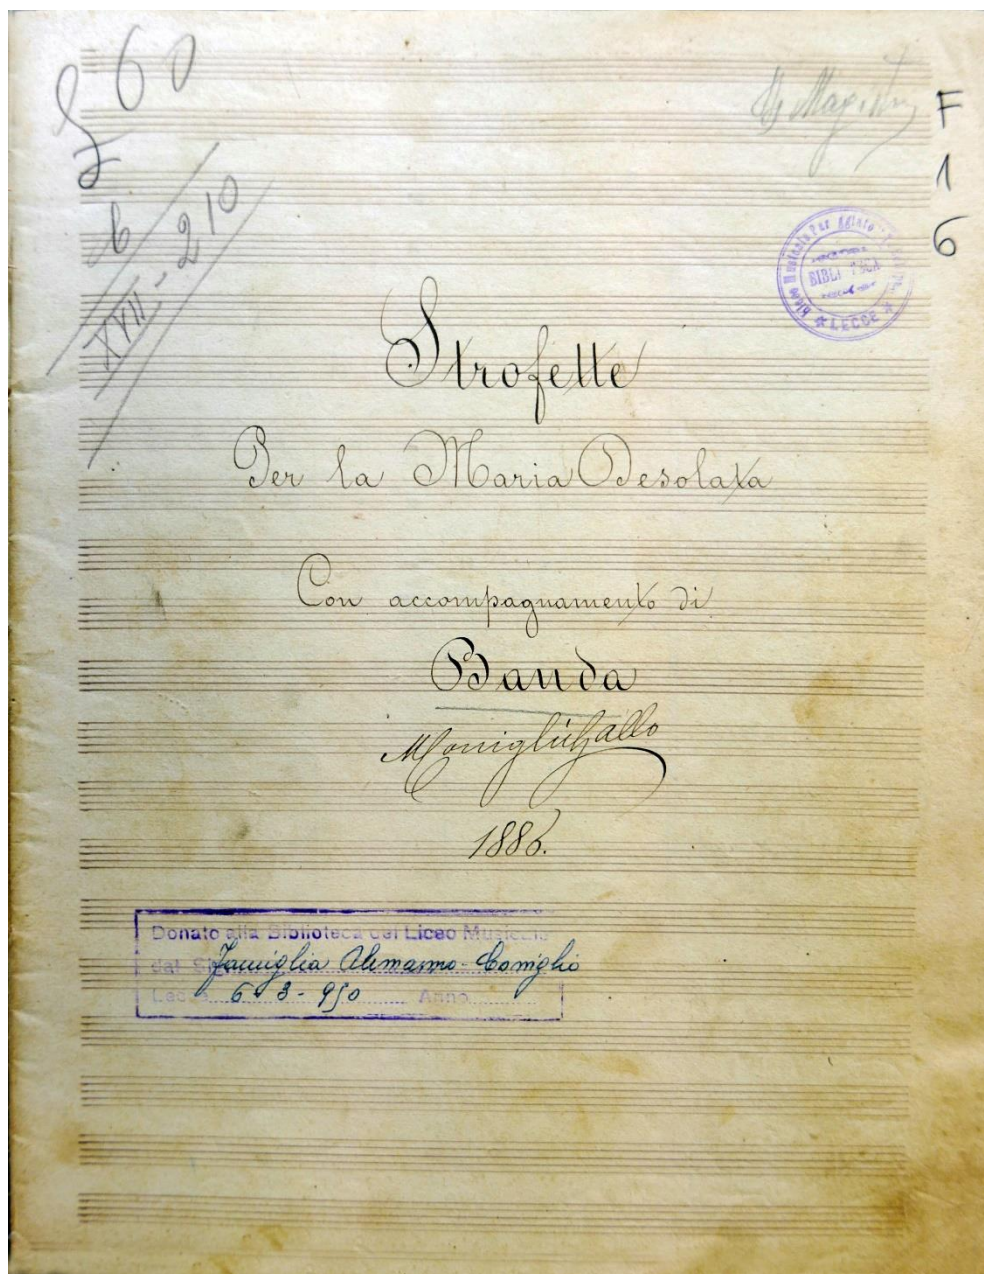 £ 60
b
XVII - 210
F
1
6
BIBLIOTECA
LECCE
Strofette
Per la Maria Desolata
Con accompagnamento di
Banda
1886.
Donato alla Biblioteca del Liceo Musicale
dal Famiglia Alemanno-Coniglio
Lecce 6-3-950 Anno